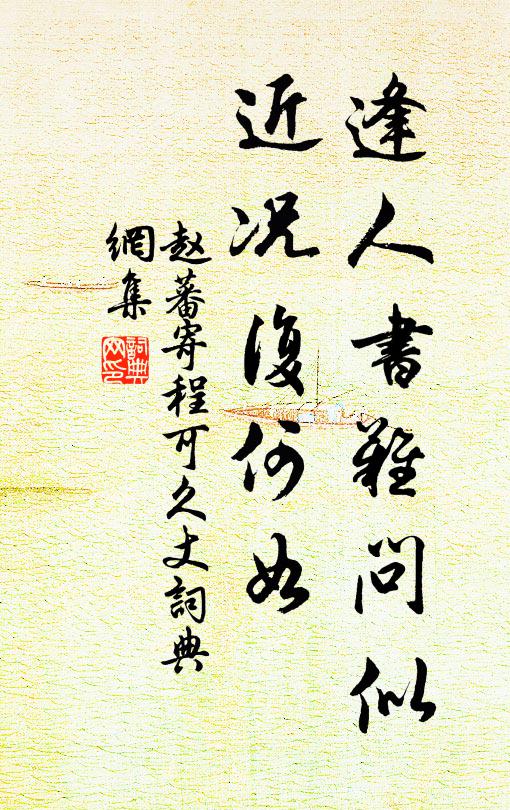 逢人书難问似
近况復何如
赵蕃寄程可久丈詞典
網集
詞典
网印